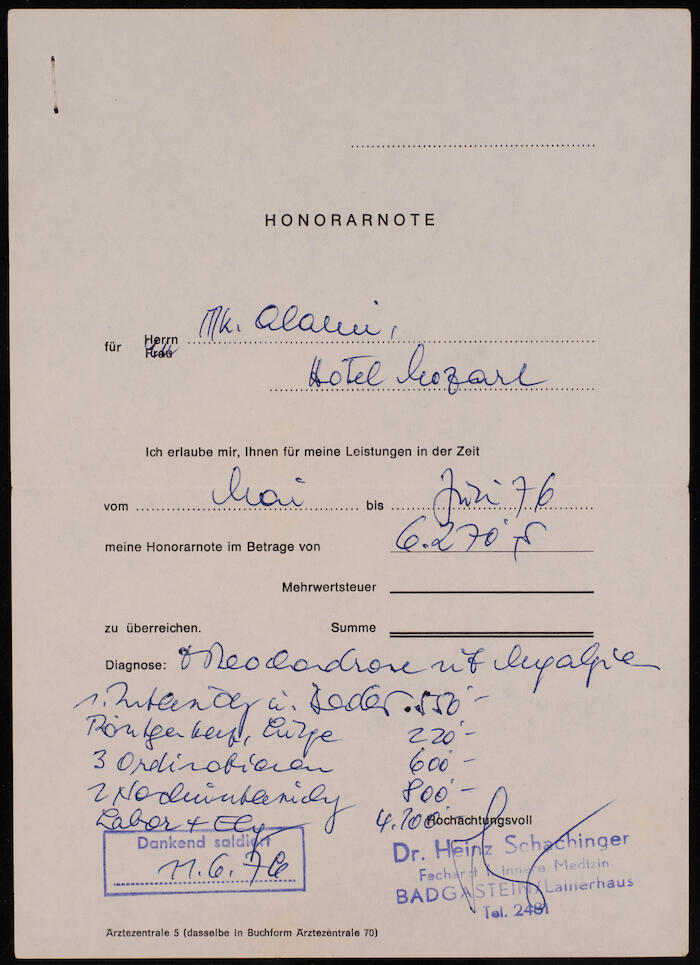 HONORARNOTE
für Herrn
Frau
Mk. Alami,
Hotel Mozart
Ich erlaube mir, Ihnen für meine Leistungen in der Zeit
vom Mai bis Juni 76
meine Honorarnote im Betrage von 6.270
Mehrwertsteuer
zu überreichen. Summe
Diagnose: mit Myalgien
550.-
220.-
3 Ordinationen 600.-
800.-
Labor + 4.100
Hochachtungsvoll
Dankend saldiert
11.6.76
Dr. Heinz Schachinger
Facharzt f. innere Medizin
BADGASTEIN/Lainerhaus
Tel. 2481
Ärztezentrale 5 (dasselbe in Buchform Ärztezentrale 70)